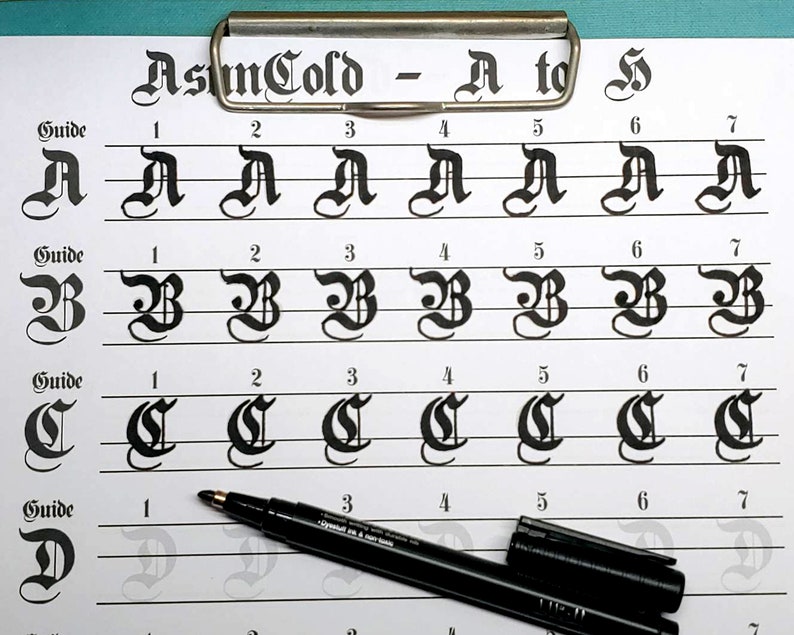 - A to H
Guide 1 2 3 4 5 6 7
A A A A A A A A
Guide 1 2 3 4 5 6 7
B B B B B B B B
Guide 1 2 3 4 5 6 7
C C C C C C C C
Guide 1 3 4 5 6 7
D D D D D D D
•Smooth writing with durable nib
•Dyestuff ink & non-toxic